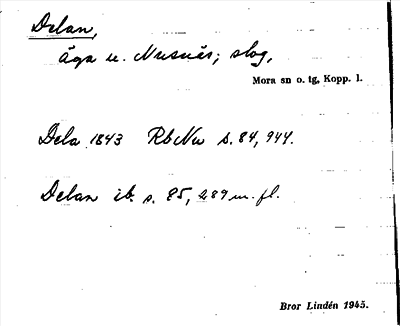 Delan,
äga u. Nusnäs; skog,
Mora sn o. tg, Kopp. l.
Dela 1843 RbNu s. 84, 944.
Delan ib. s. 85, 289 m. fl.
Bror Lindén 1945.